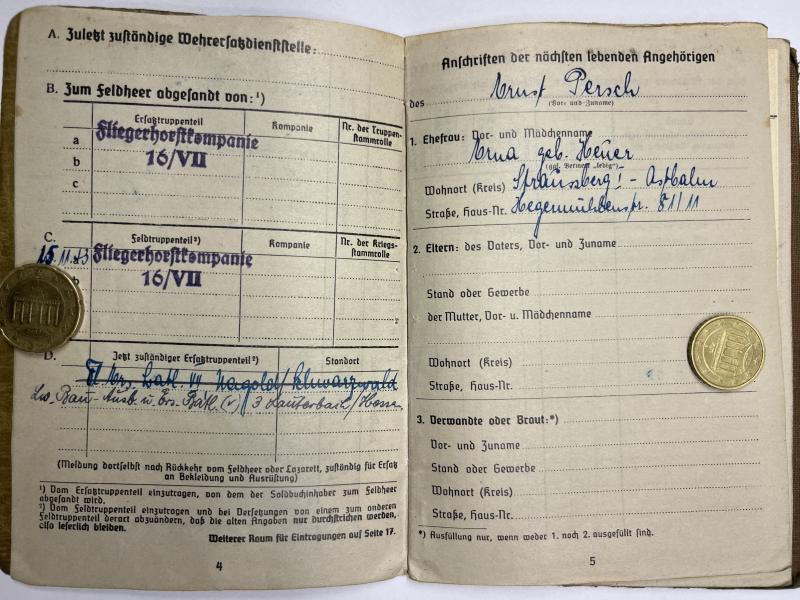 A. Zuletzt zuständige Wehrersatzdienststelle:
B. Zum Feldheer abgesandt von:¹)
Ersatztruppenteil Kompanie Nr. der Truppen-
stammrolle
a Fliegerhorstkompanie
b 16/VII
c
C. Feldtruppenteil²) Kompanie Nr. der Kriegs-
stammrolle
15.11.43 Fliegerhorstkompanie
b 16/VII
D. Jetzt zuständiger Ersatztruppenteil²) Standort
Fl. Ers. Batl. VII Nagold/Schwarzwald
Lw. Bau-Ausb. u. Ers. Batl. (v) 3 Lauterbach/Hessen
(Meldung dortselbst nach Rückkehr vom Feldheer oder Lazarett, zuständig für Ersatz
an Bekleidung und Ausrüstung)
¹) Vom Ersatztruppenteil einzutragen, von dem der Soldbuchinhaber zum Feldheer
abgesandt wird.
²) Vom Feldtruppenteil einzutragen und bei Versetzungen von einem zum anderen
Feldtruppenteil derart abzuändern, daß die alten Angaben nur durchstrichen werden,
also leserlich bleiben.
Weiterer Raum für Eintragungen auf Seite 17.
4
Anschriften der nächsten lebenden Angehörigen
des Ernst Persch
(Vor- und Zuname)
1. Ehefrau: Vor- und Mädchenname
Erna geb. Heuer
(ggf. Vermerk „ledig“)
Wohnort (Kreis) Straussberg
Straße, Haus-Nr. Hegermühlenstr. 81/11
2. Eltern: des Vaters, Vor- und Zuname
Stand oder Gewerbe
der Mutter, Vor- u. Mädchenname
Wohnort (Kreis)
Straße, Haus-Nr.
3. Verwandte oder Braut:*)
Vor- und Zuname
Stand oder Gewerbe
Wohnort (Kreis)
Straße, Haus-Nr.
*) Ausfüllung nur, wenn weder 1. noch 2. ausgefüllt sind.
5